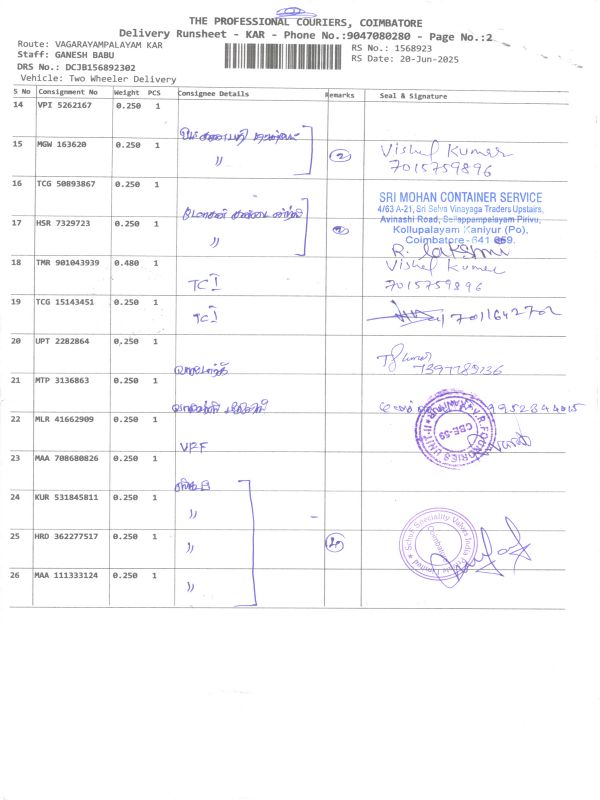 THE PROFESSIONAL COURIERS, COIMBATORE
Delivery Runsheet - KAR - Phone No.:9047080280 - Page No.:2
Route: VAGARAYAMPALAYAM KAR
Staff: GANESH BABU
DRS No.: DCJB156892302
Vehicle: Two Wheeler Delivery
RS No.: 1568923
RS Date: 20-Jun-2025
S No Consignment No Weight PCS Consignee Details Remarks Seal & Signature
14 VPI 5262167 0.250 1
15 MGW 163620 0.250 1 〃 2 Vishal Kumar
7015759896
16 TCG 50893867 0.250 1
SRI MOHAN CONTAINER SERVICE
4/63 A-21, Sri Selva Vinayaga Traders Upstairs,
Avinashi Road, Sellappampalayam Pirivu,
Kollupalayam Kaniyur (Po),
Coimbatore-641 659.
17 HSR 7329723 0.250 1 〃 2 R. Lakshmi
18 TMR 901043939 0.480 1 TCI Vishal Kumar
7015759896
19 TCG 15143451 0.250 1 TCI 7011642702
20 UPT 2282864 0.250 1
21 MTP 3136863 0.250 1 9952844015
22 MLR 41662909 0.250 1 VRF
V.R. FOUNDRIES UNIT II KANIYUR CBE-59
23 MAA 708680826 0.250 1
24 KUR 531845811 0.250 1 〃
25 HRD 362277517 0.250 1 〃 4
Schub Speciality Valves India Private Limited Coimbatore
26 MAA 111333124 0.250 1 〃